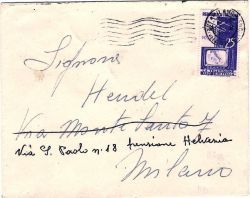 Signora
Hendel
Via Monte Santo 7
Via S. Paolo n. 18 pensione Helvaria
Milano
25